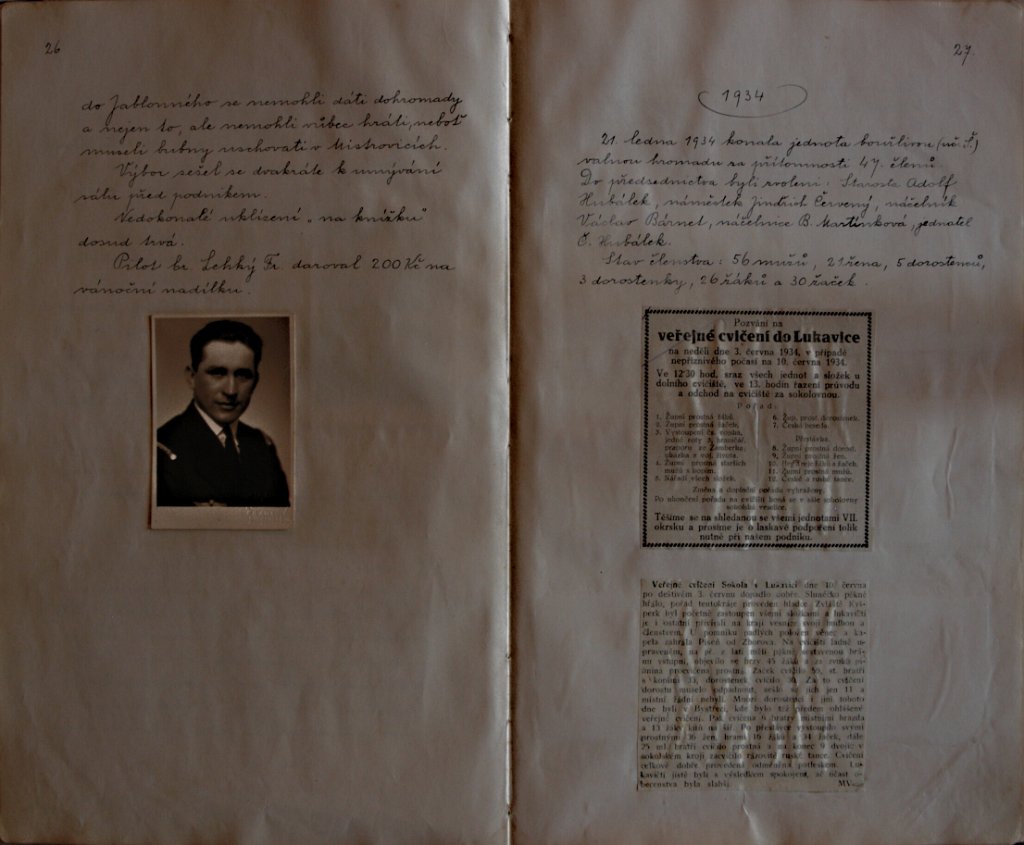 26
do Jablonného se nemohli dáti dohromady
a nejen to, ale nemohli vůbec hráti, neboť
museli bubny uschovati v Mistrovicích.
Výbor sešel se dvakráte k umývání
sálu před podnikem.
Nedokonalé uklízení „na knížku“
dosud trvá.
Pilot br. Lehký Fr. daroval 200 Kč na
vánoční nadílku.
27.
1934
21. ledna 1934 konala jednota bouřlivou (uč. Š.)
valnou hromadu za přítomnosti 47 členů.
Do předsednictva byli zvoleni: Starosta Adolf
Hubálek, náměstek Jindřich Červený, náčelník
Václav Bárnet, náčelnice B. Martinková, jednatel
Č. Hubálek.
Stav členstva: 56 mužů, 21 žena, 5 dorostenců,
3 dorostenky, 26 žáků a 30 žaček.
Pozvání na
veřejné cvičení do Lukavice
na neděli dne 3. června 1934, v případě
nepříznivého počasí na 10. června 1934.
Ve 12·30 hod. sraz všech jednot a složek u
dolního cvičiště, ve 13. hodin řazení průvodu
a odchod na cvičiště za sokolovnou.
Pořad:
1. Župní prostná žáků.
2. Župní prostná žaček.
3. Vystoupení čs. vojska,
jedné roty 3. hraničář.
praporu ze Žamberka,
ukázka z voj. života.
4. Župní prostná starších
mužů s kopím.
5. Nářadí všech složek.
6. Žup. prost. dorostenek.
7. Česká beseda.
Přestávka.
8. Župní prostná dorost.
9. Župní prostná žen.
10. Hry žáků a žaček.
11. Župní prostná mužů.
12. České a ruské tance.
Změna a doplnění pořadu vyhraženy.
Po ukončení pořadu na cvičišti koná se v sále sokolovny
sokolská veselice.
Těšíme se na shledanou se všemi jednotami VII.
okrsku a prosíme je o laskavé podpoření tolik
nutné při našem podniku.
Veřejné cvičení Sokola v Lukavici dne 10. června
po deštivém 3. červnu dopadlo dobře. Sluníčko pěkně
hřálo, pořad tentokráte proveden hladce. Zvláště Kyš-
perk byl početně zastoupen všemi složkami a lukavičtí
je i ostatní přivítali na kraji vesnice svojí hudbou a
členstvem. U pomníku padlých položen věnec a ka-
pela zahrála Píseň od Zborova. Na cvičišti ládně u-
praveném, na př. z latí měli pěkně sestavenou brá-
nu vstupní, objevilo se brzy 45 žáků a za zvuků
prostná. Žaček cvičilo 50, st. bratří
s kopími 31, dorostenek cvičilo 30. Za to cvičení
dorostu muselo odpadnout, sešlo se jich jen 11 a
místní žádní nebyli. Mnozí dorostenci i jiní tohoto
dne byli v Bystřeci, kde bylo též předem ohlášené
veřejné cvičení. Pak cvičena 9 bratry místními hrazda
a 13 žáky kůň na šíř. Po přestávce vystoupilo svými
prostnými 36 žen, hrami 16 žáků a 34 žaček, dále
25 ml. bratří cvičilo prostná a na konec 9 dvojic v
sokolském kroji zacvičilo rázovité ruské tance. Cvičení
celkově dobře provedená odměněna potleskem. Lu-
kavičtí jistě byli s výsledkem spokojeni, ač účast o-
becenstva byla slabší. MV